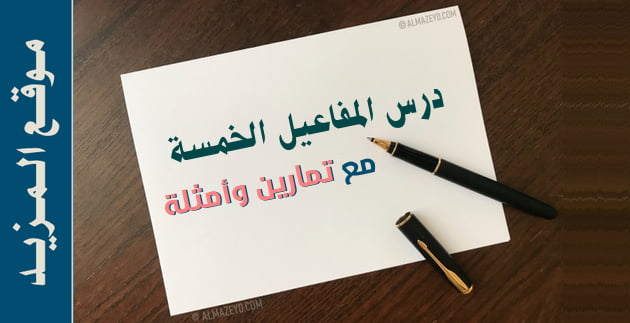 © ALMAZEYD.COM
درس المفاعيل الخمسة
مع تمارين وأمثلة
© ALMAZEYD.COM
موقع المزيد